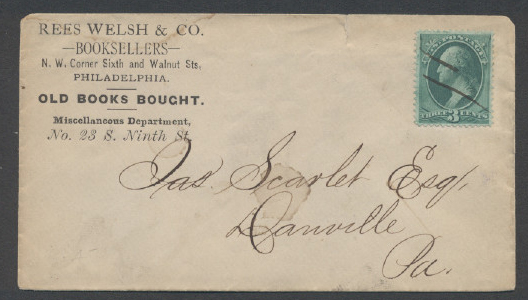 REES WELSH & CO.
—BOOKSELLERS—
N. W. Corner Sixth and Walnut Sts.
PHILADELPHIA.
OLD BOOKS BOUGHT.
Miscellaneous Department,
No. 23 S. Ninth St.
U.S. POSTAGE
THREE 3 CENTS
Jas. Scarlet Esq,
Danville
Pa.